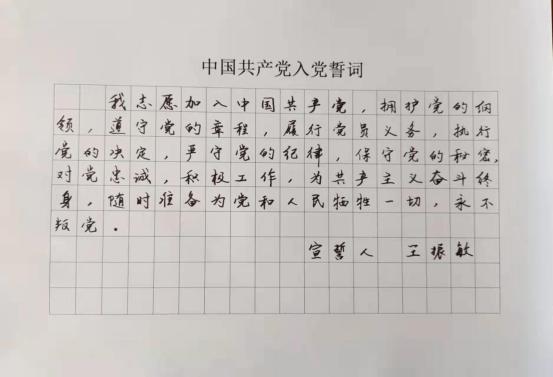 中国共产党入党誓词
我志愿加入中国共产党，拥护党的纲
领，遵守党的章程，履行党员义务，执行
党的决定，严守党的纪律，保守党的秘密，
对党忠诚，积极工作，为共产主义奋斗终
身，随时准备为党和人民牺牲一切，永不
叛党。
宣誓人 王振敏